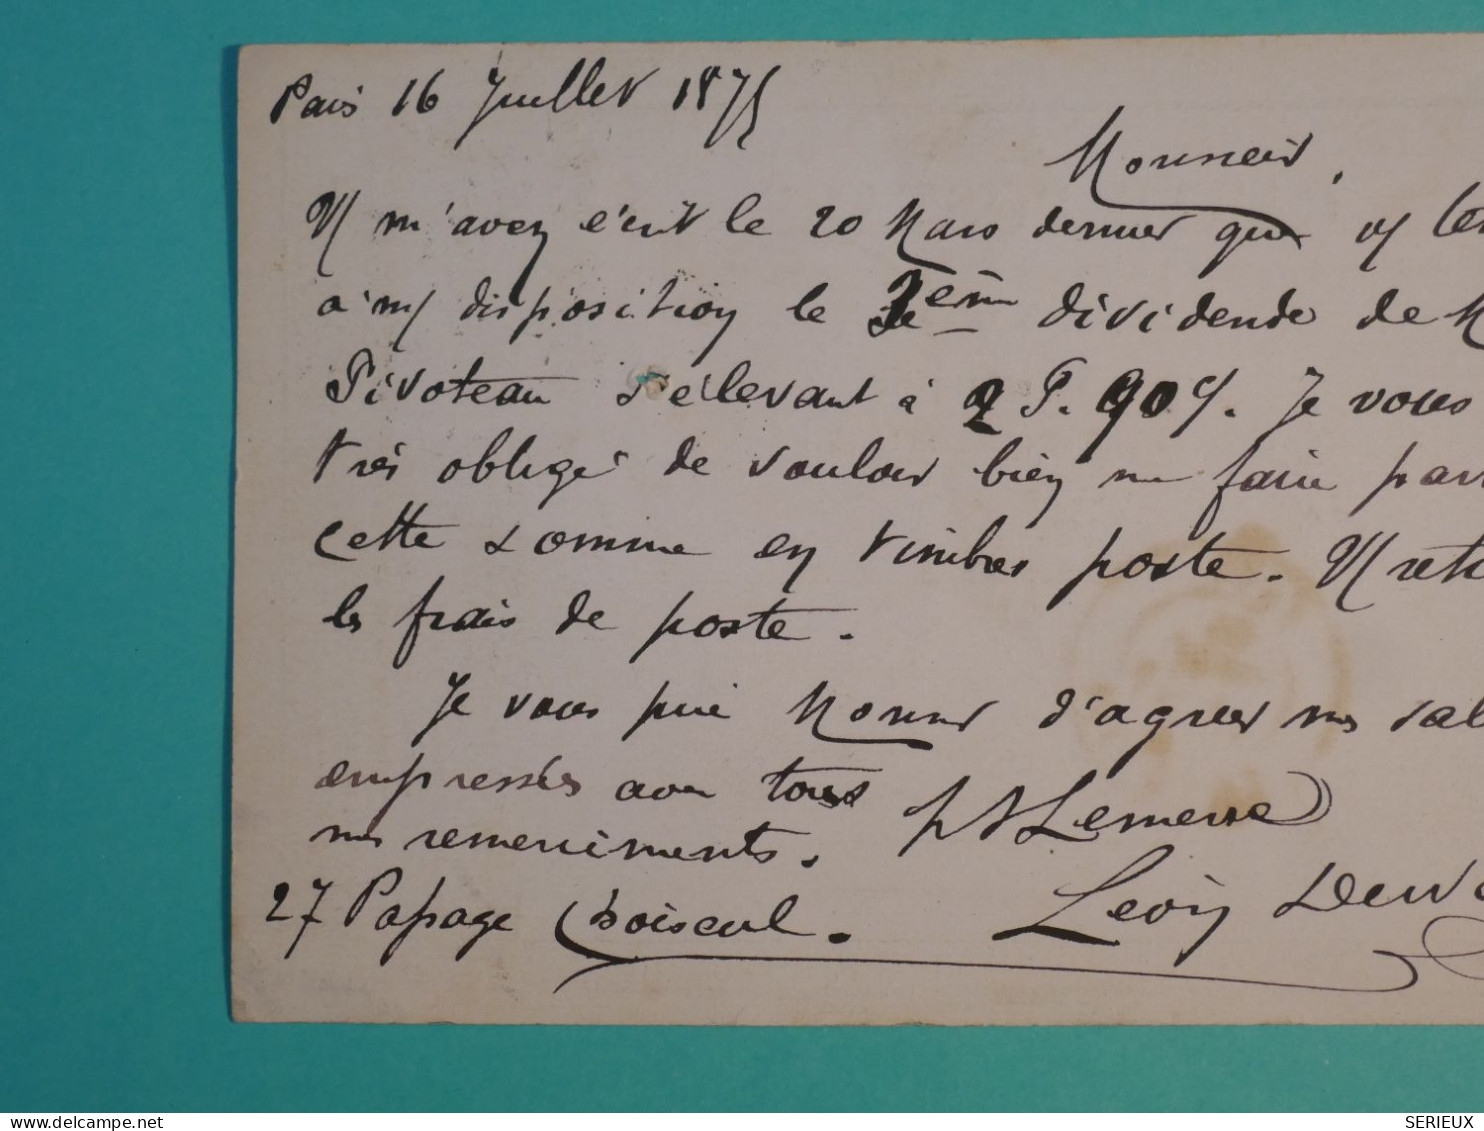 Paris 16 Juillet 1875
Monsieur,
V m'avez écrit le 20 Mars dernier que v/ ten
à m/ disposition le 2ème dividende de M
Pivoteau s'élevant à 2 F. 90 c/. Je vous
très obligé de vouloir bien me faire parv
cette somme en timbres poste. V ret
les frais de poste.
Je vous prie Monsieur d'agréer mes sal
empressées avec tous
mes remerciments.
p A Lemerre
27 Passage Choiseul.
Léon
SERIEUX